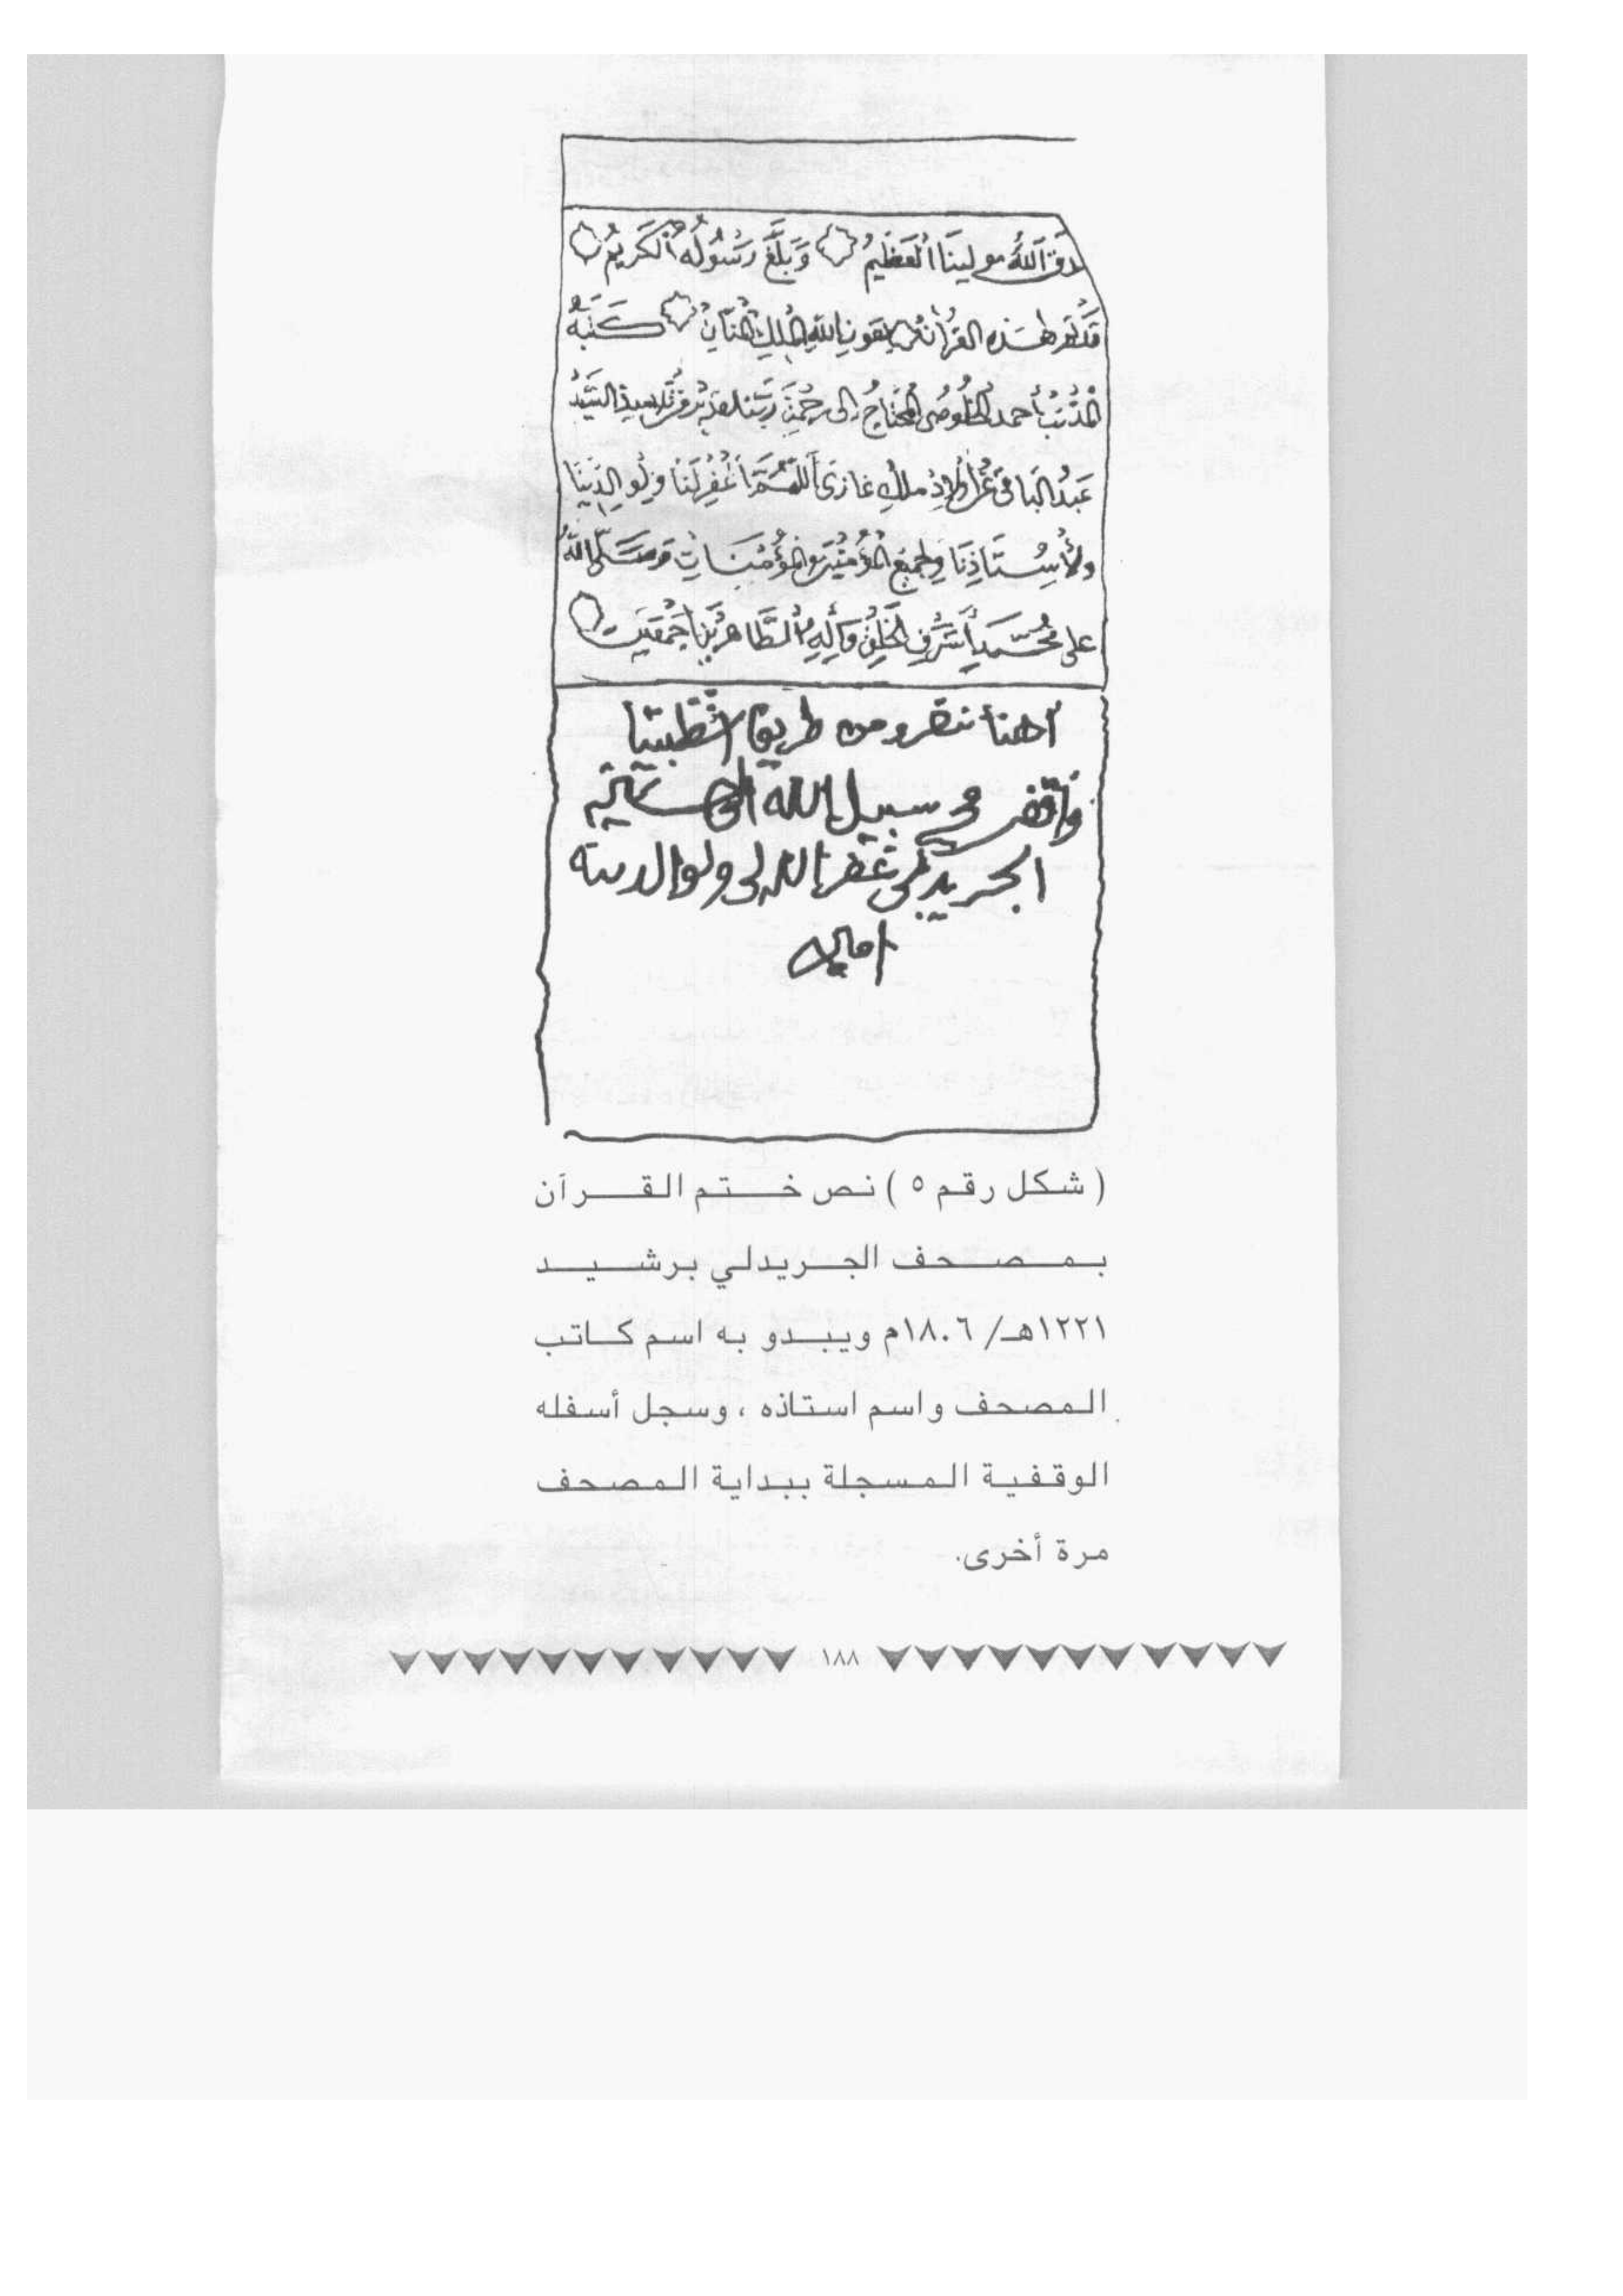 دق الله مولينا العظيم وبلغ رسوله الكريم
هذه القرآن بعون الله الملك المنان كتبه
المذنب أحمد المحتاج إلى رحمة ربنا السيد
عبد الباقي غازي اللهم اغفر لنا ولوالدينا
ولأستاذنا ولجميع المؤمنين والمؤمنات وصلى الله
على محمد أشرف الخلق وآله الطاهرين أجمعين
من طريق
في سبيل الله
الجريدلي غفر الله لي ولوالديه
امين
( شكل رقم ٥ ) نص ختم القرآن
بمصحف الجريدلي برشيد
١٢٢١هـ/ ١٨٠٦م ويبدو به اسم كاتب
المصحف واسم استاذه ، وسجل أسفله
الوقفية المسجلة ببداية المصحف
مرة أخرى.
١٨٨